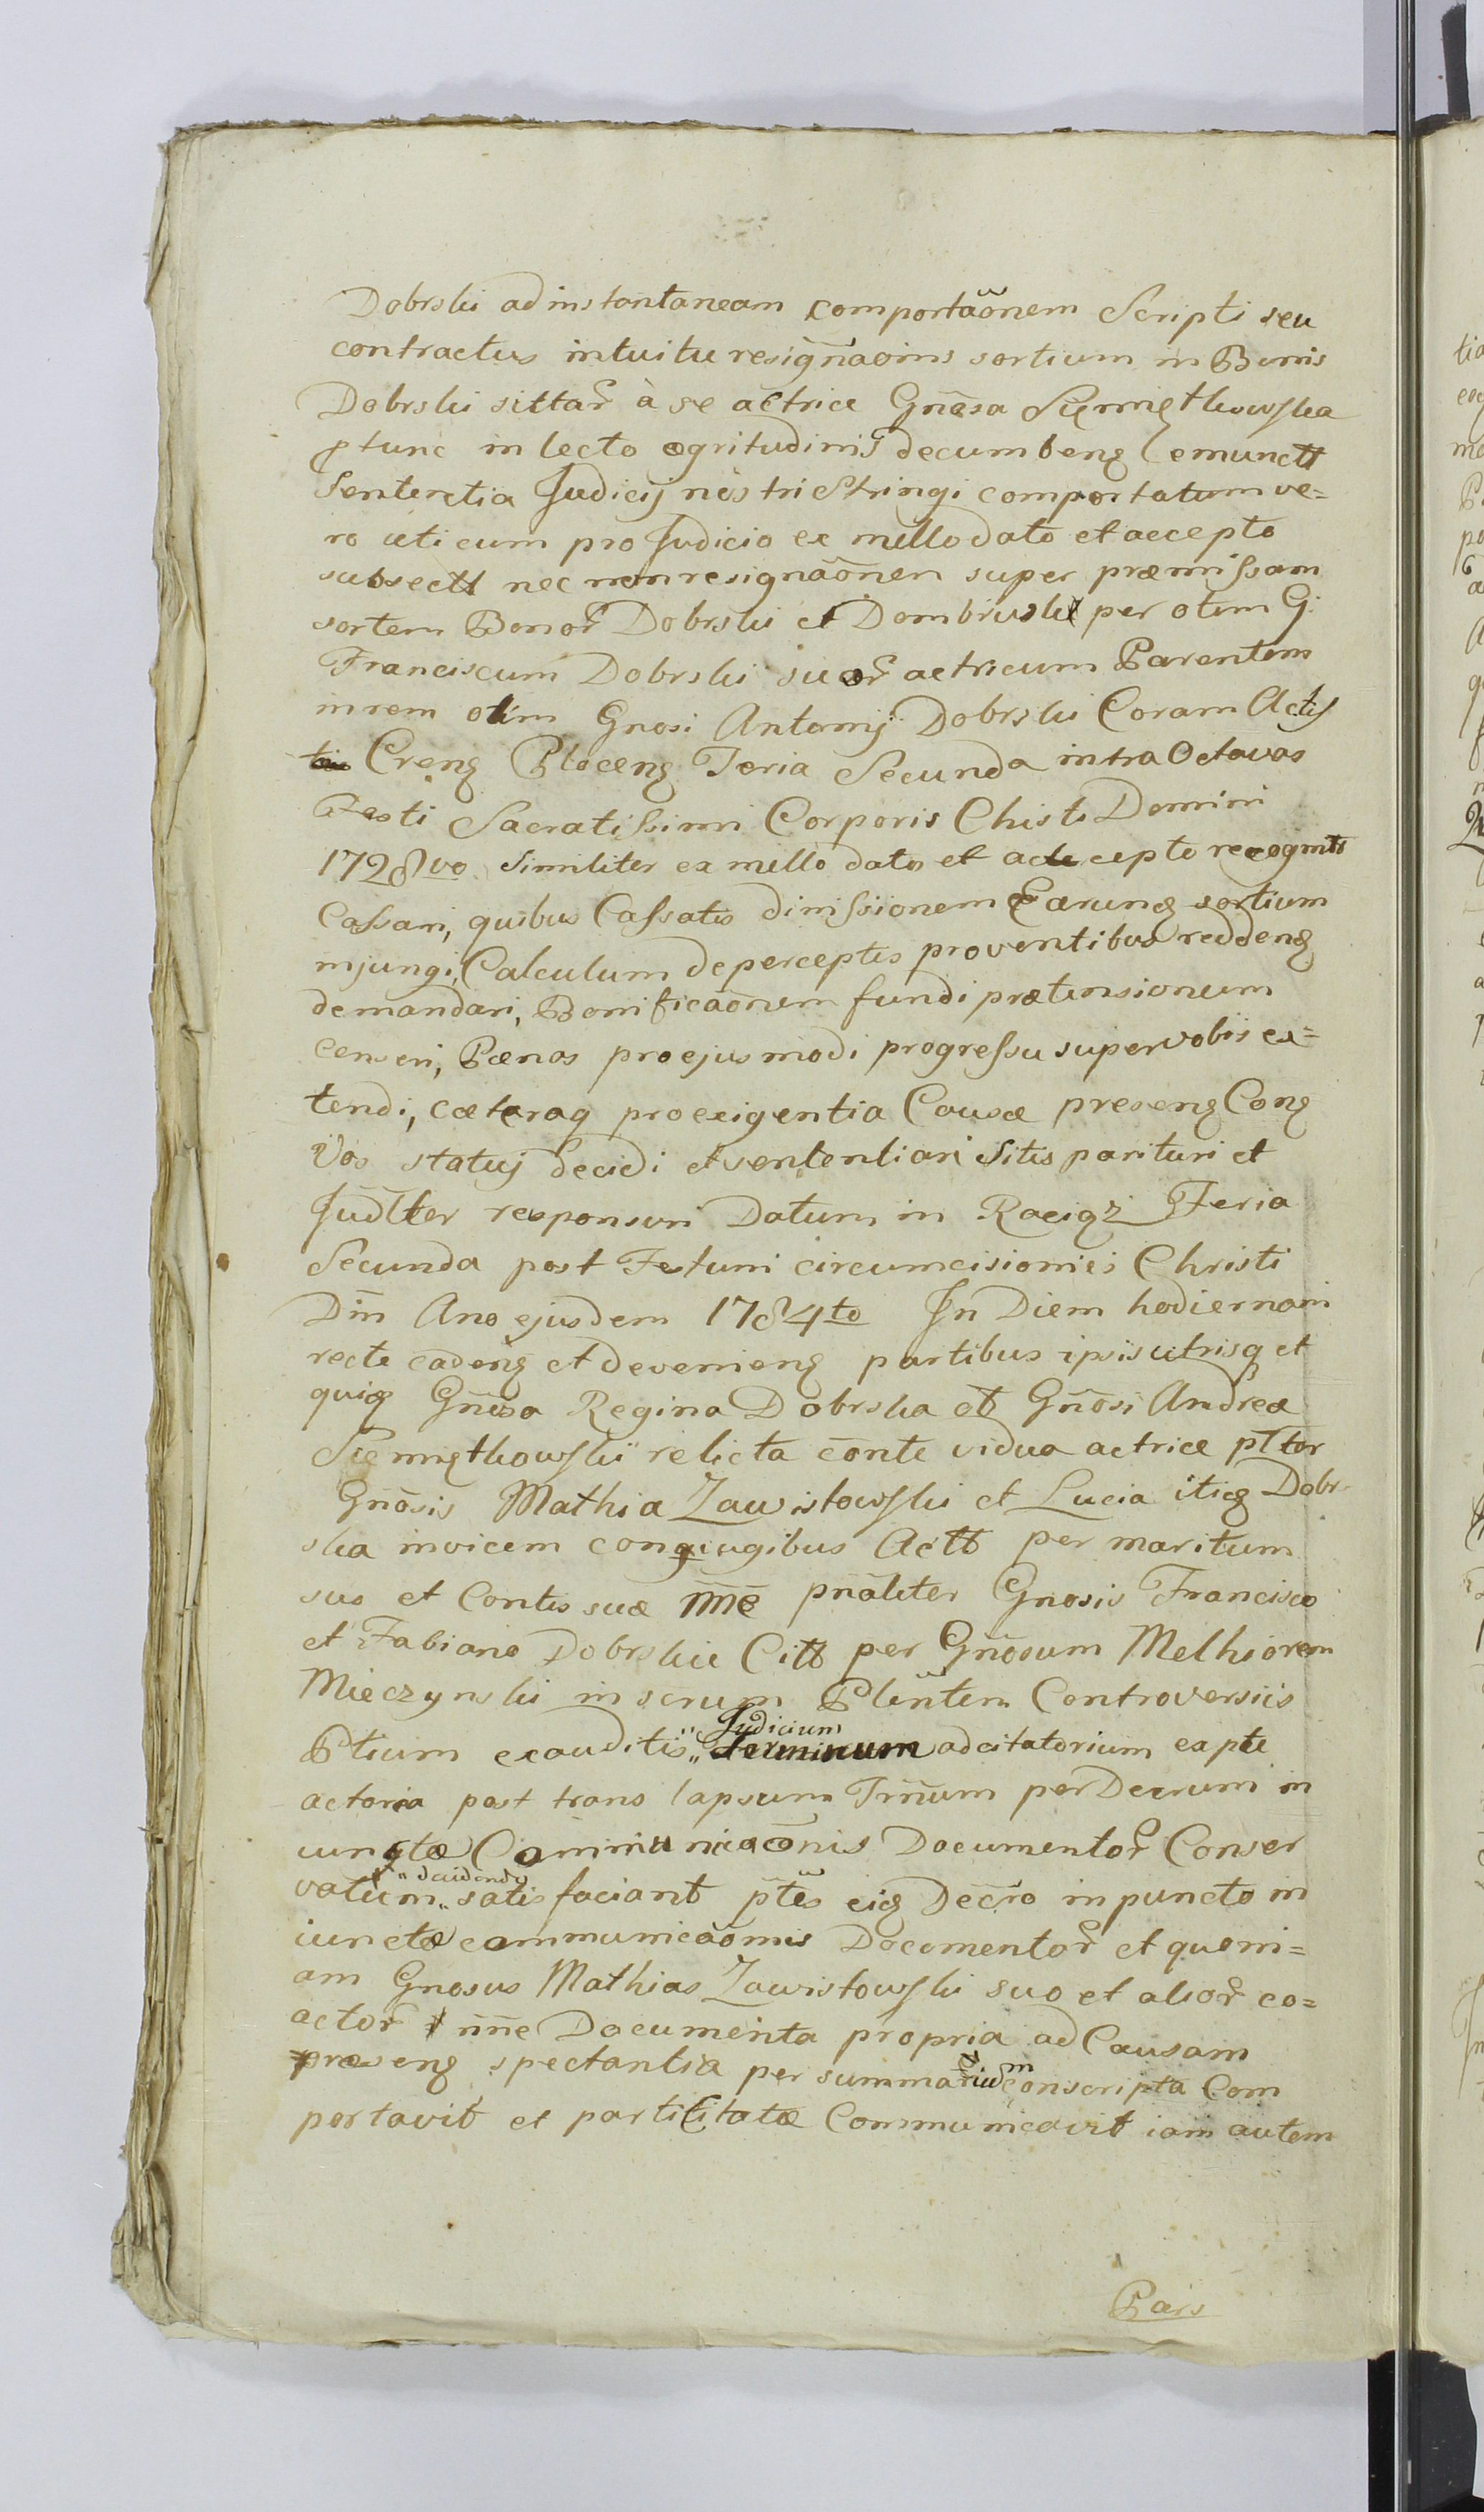 Dobrski ad instantaneam comportãonem Scripti seu
contractus intuitu resignãonis sortium in Bonis
Dobrski sittar̃ à se actrice Gñosa Siemiętkowska
ptunc in lecto ægritudinis decumbenꝫ emunctt
Sententia Judicij nostri Stringi comportatum ve=
ro uti cum pro Judicio ex nullo dato et accepto
subsectt nec non resignãonen super præmissam
sortem Bonor̃ Dobrski et Dombrusk per olim G:
Franciscum Dobrski suor̃ actricum Parentem
in rem olim Gnosi Antonij Dobrski Coram Actis
Crenꝫ Plocenꝫ Feria Secunda intra Octavas
Festi Sacratissimi Corporis Christi Domini
1728vo Similiter ex nullo dato et accepto recognits
Cassari, quibus Cassatis dimissionem Earunꝫ sortium
injungi, Calculum de perceptis proventibus reddenꝫ
demandari, Bonificaõnem fundi prætensionum
censeri, Pœnas pro ejusmodi progressu super vobis ex=
tendi, cæteraq pro exigentia Causæ presenꝫ Conꝫ
Vos statuj decidi et sententiari Sitis parituri et
Judltter responsuri Datum in Raciąz Feria
Secunda post Festum circumcisionies Christi
Dm̃ Ano ejusdem 1784to In Diem hodiernam
recte cadenꝫ et devenienꝫ partibus ipsis utrisq et
quiꝫ Gñosa Regina Dobrska ot Gñosi Andreæ
Siemiętkowski relicta c̃onte vidua actrice pltor
Gñosis Mathia Zawistowski et Lucia itiꝫ Dobr
ska invicem congiugibus Actt per maritum
suo et Contis suæ nñe pñaliter Gnosis Francisco
et Fabiano Dobrskie Citt per Gñosum Melhiorem
Mieczynski in serum Plentem Controversiis
Ptium exauditis „ Judicium
terminum ad citatorium ex pte
actorea post trans lapsum Tm̃um per Decrum in
iunctæ Communicaõnis Documentor̃ Conser
vatum „ decidendo
satis faciant p̃tes eiꝫ Decro in puncto in
iunctæ communicaõnis Documentor̃ et quoni=
am Gnosus Mathias Zawistowski suo et alior̃ co=
actor̃ nñe Documenta propria ad Causam
præsenꝫ spectantia per summarium conscripta Com
portavit et parti Citatæ Communicavit iam autem
Pars